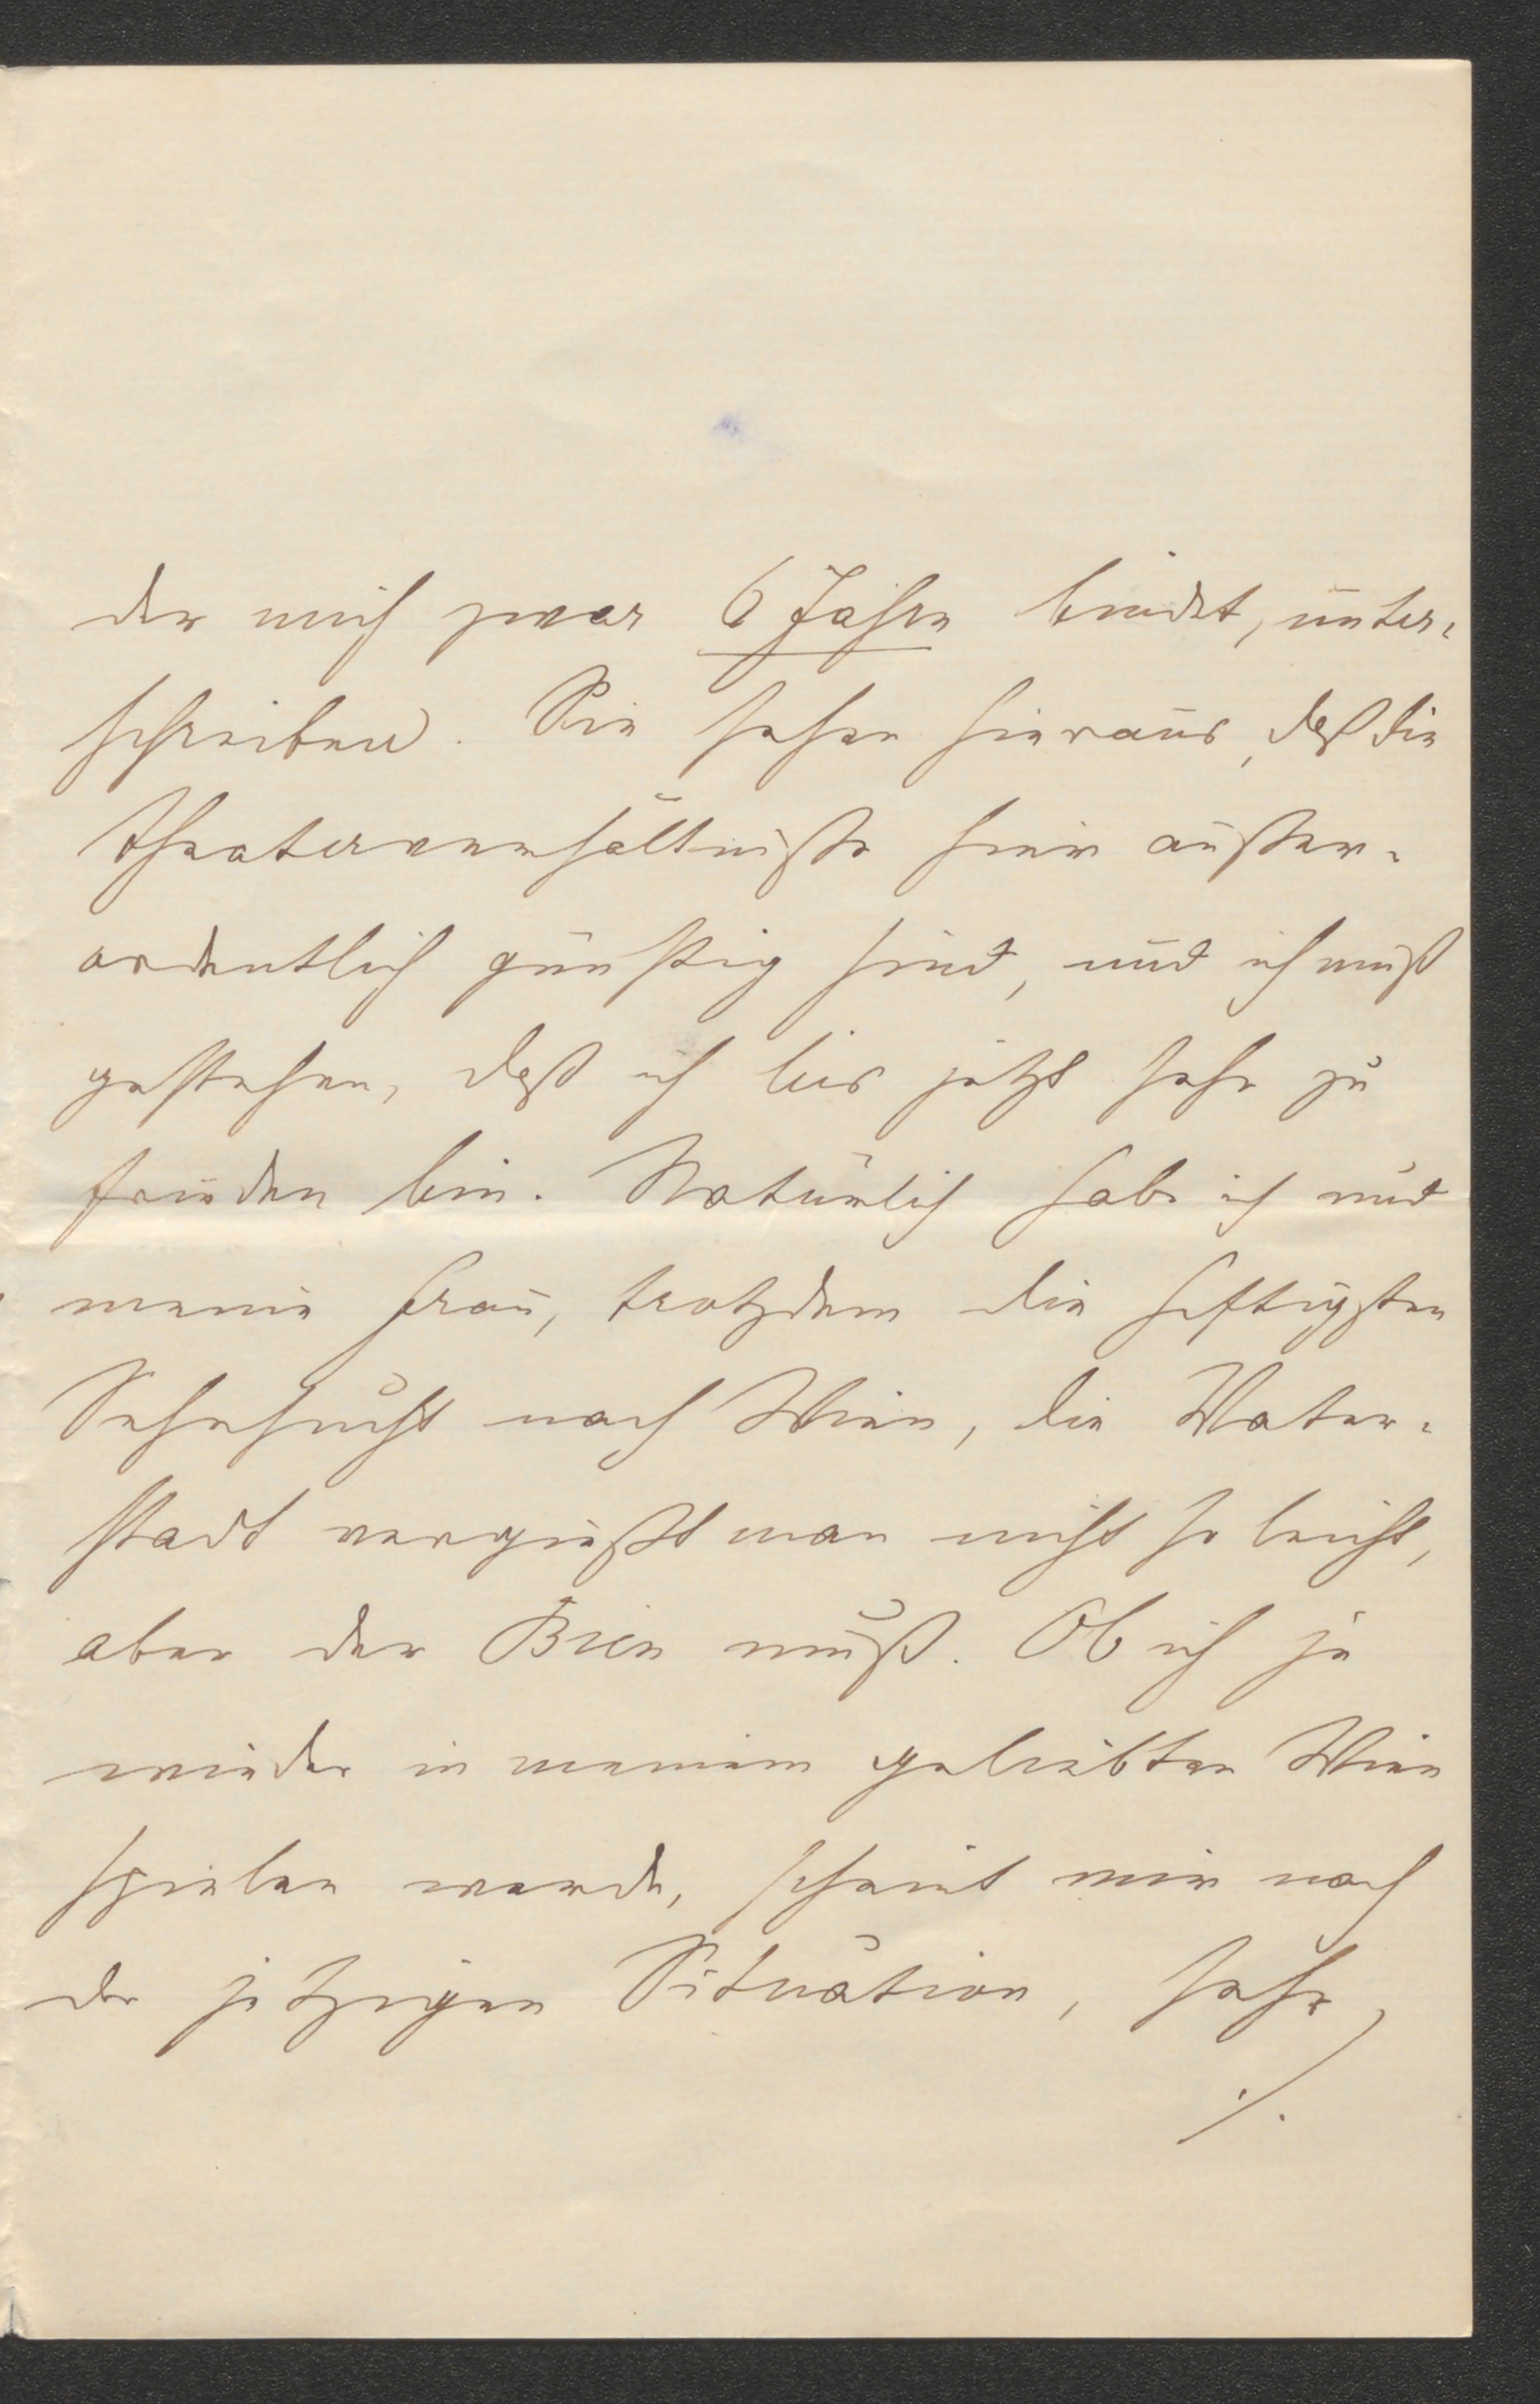 der mich zwar 6 Jahre bindet, unter-
schreiben. Sie sehen hieraus, daß die
Theaterverhältniße hier außer-
ordentlich günstig sind, und ich muß
gestehen, daß ich bis jetzt sehr zu
frieden bin. Natürlich habe ich und
meine Frau, trotzdem die heftigsten
Sehnsucht nach Wien, die Vater-
stadt vergießt man nicht so leicht,
aber der Bien muß. Ob ich je
wieder in meinem geliebten Wien
spielen werde, scheint mir nach
der jetzigen Situation, sehr,
./.